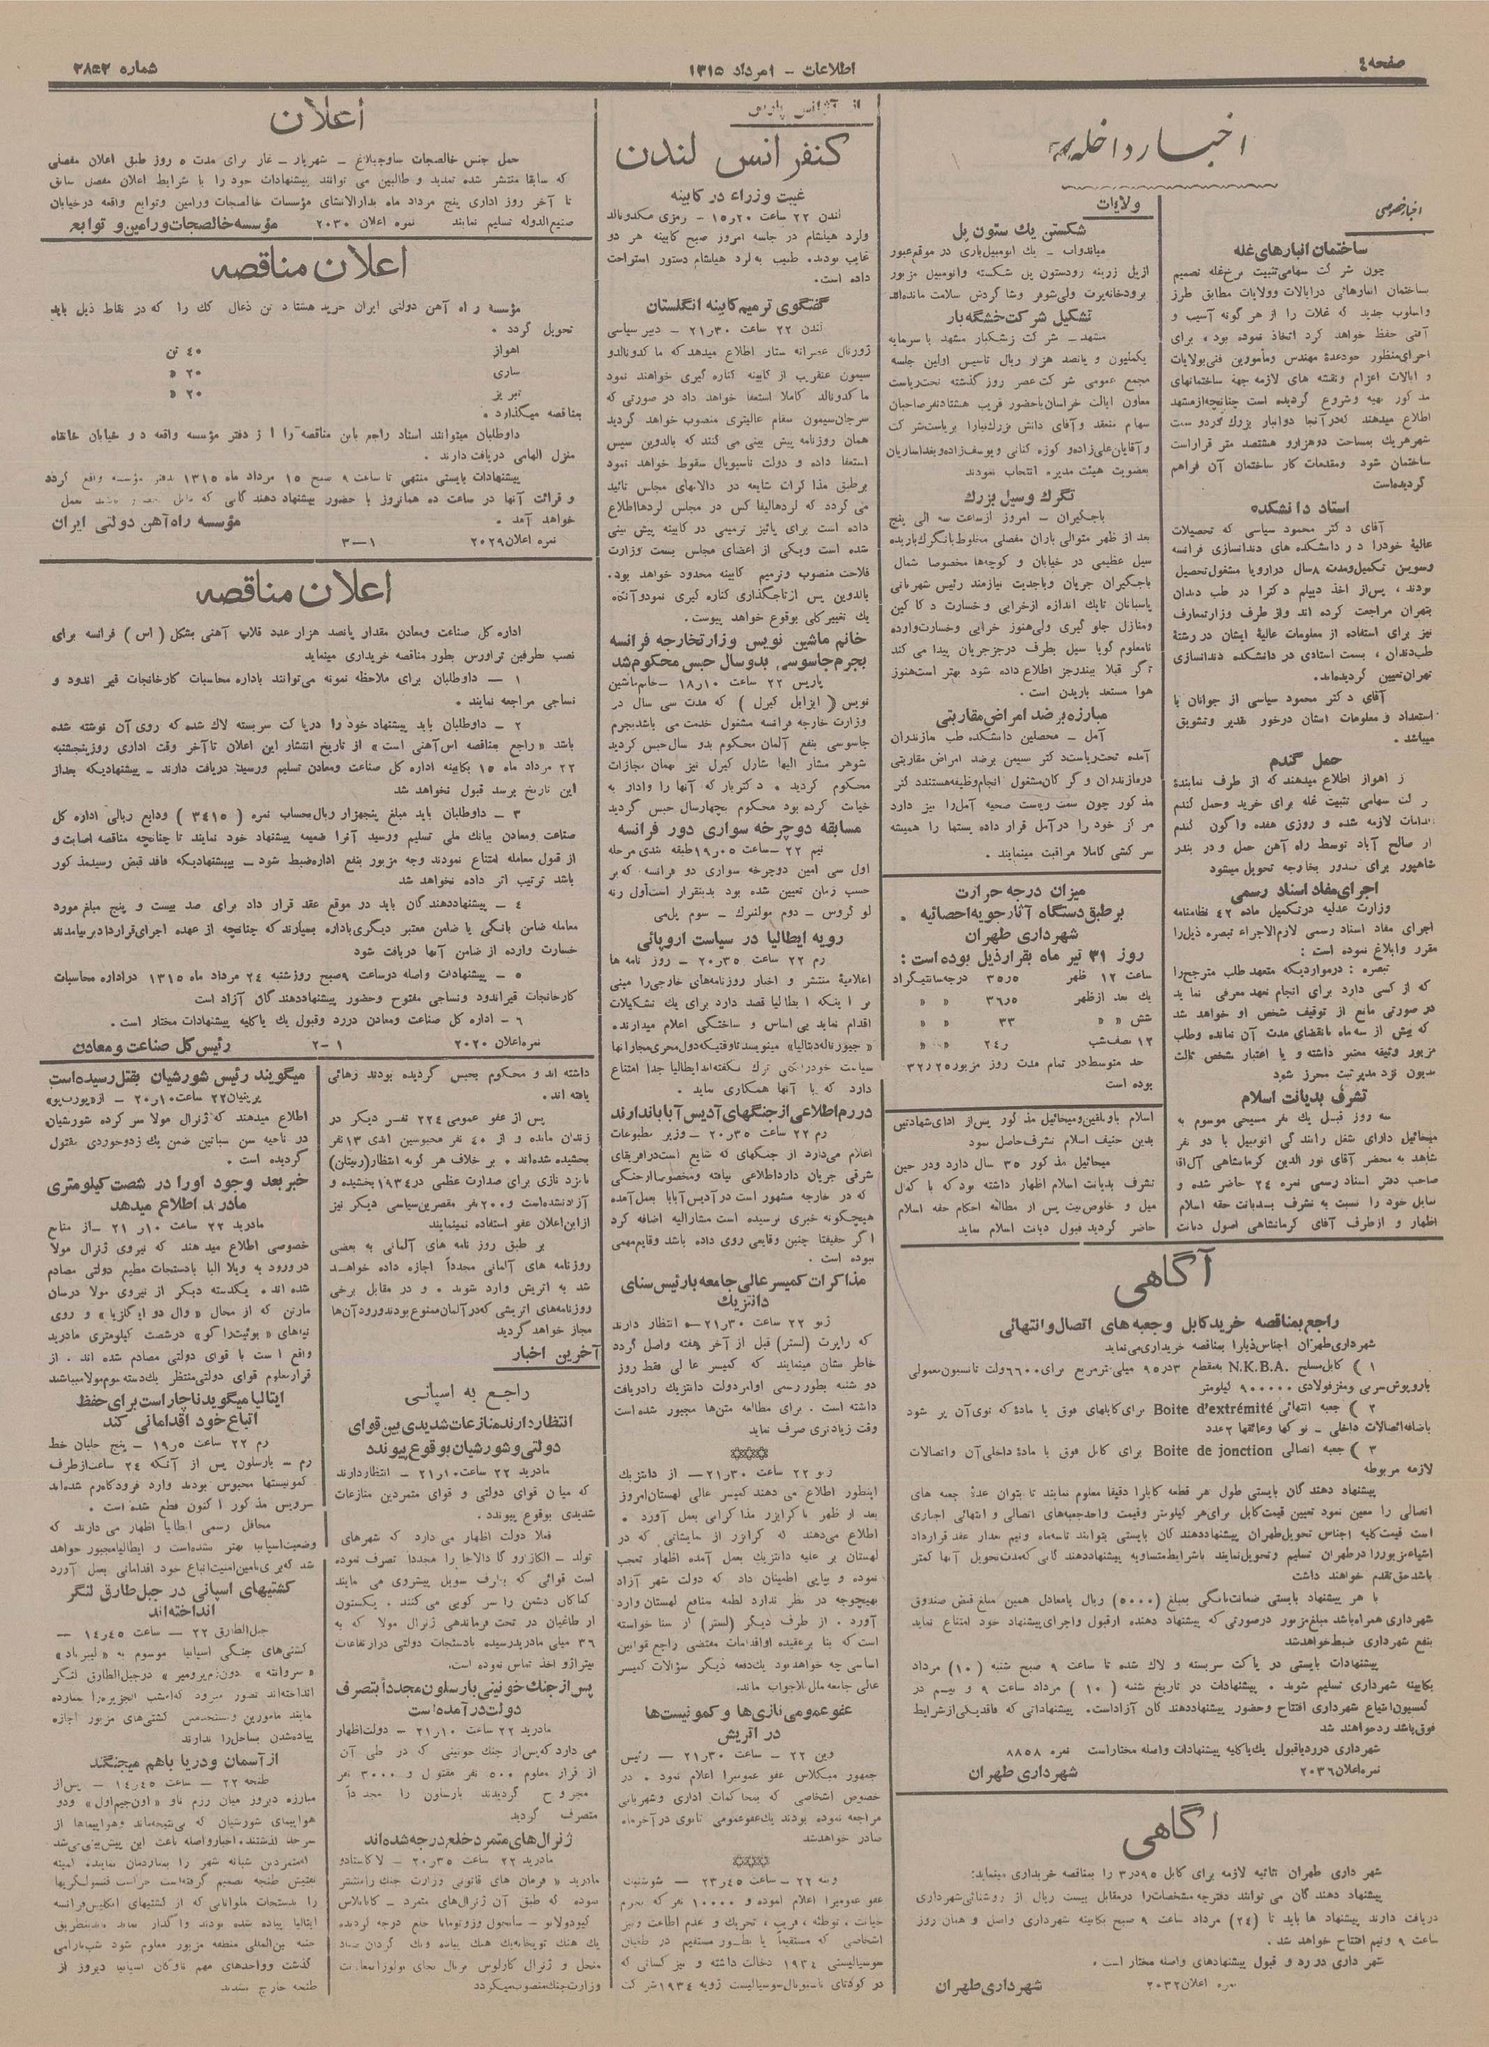 صفحه ٤
اطلاعات - ۱ مرداد ۱۳۱۵
شماره ۲۸۵۲
اخبار داخله
اخبار خصوصی
ساختمان انبارهای غله
چون شرکت سهامی تثبیت نرخ غله تصمیم
ساختمان انبارهائی در ایالات و ولایات مطابق طرز
و اسلوب جدید که غلات را از هر گونه آسیب و
آفتی حفظ خواهد کرد اتخاذ نموده بود، برای
اجرای منظور خود عدهٔ مهندس و مأمورین فنی بولایات
و ایالات اعزام و نقشه های لازمه جهة ساختمانهای
مذکور تهیه و شروع گردیده است چنانچه از مشهد
اطلاع میدهند که در آنجا دو انبار بزرگ
شهر هریک بمساحت دو هزار و هشتصد متر قرار است
ساختمان شود و مقدمات کار ساختمان آن فراهم
گردیده است
استاد دانشکده
آقای دکتر محمود سیاسی که تحصیلات
عالیهٔ خود را در دانشکده های دندانسازی فرانسه
و سویس تکمیل و مدت ۸ سال در اروپا مشغول تحصیل
بودند، پس از اخذ دیپلم دکترا در طب دندان
بتهران مراجعت کرده اند و از طرف وزارت معارف
نیز برای استفاده از معلومات عالیهٔ ایشان در رشتهٔ
طب دندان، بسمت استادی در دانشکده دندانسازی
تهران تعیین گردیده اند.
آقای دکتر محمود سیاسی از جوانان با
استعداد و معلومات استان درخور تقدیر و تشویق
میباشد.
حمل گندم
از اهواز اطلاع میدهند که از طرف نمایندهٔ
شرکت سهامی تثبیت غله برای خرید و حمل گندم
اقدامات لازمه شده و روزی هفده واگون گندم
از صالح آباد توسط راه آهن حمل و در بندر
شاهپور برای صدور بخارجه تحویل میشود
اجرای مفاد اسناد رسمی
وزارت عدلیه در تکمیل ماده ۴۲ نظامنامه
اجرای مفاد اسناد رسمی لازم الاجراء تبصره ذیل را
مقرر و ابلاغ نموده است:
تبصره: در مواردیکه متعهد طلب مترجع را
که از کسی دارد برای انجام تعهد معرفی نماید
در صورتی مانع از توقیف شخص او خواهد شد
که بیش از سه ماه بانقضای مدت آن نمانده و طلب
مزبور وثیقه معتبر داشته و یا اعتبار شخص ثالث
مدیون نزد مدیر ثبت محرز شود
تشرف بدیانت اسلام
سه روز قبل یک نفر مسیحی موسوم به
میخائیل دارای شغل رانندگی اتومبیل با دو نفر
شاهد به محضر آقای نور الدین کرمانشاهی آل آقا
صاحب دفتر اسناد رسمی نمره ۲۴ حاضر شده و
تمایل خود را نسبت به تشرف بدیانت حقه اسلام
اظهار و از طرف آقای کرمانشاهی اصول دیانت
ولایات
شکستن یک ستون پل
میاندوآب - یک اتومبیل باری در موقع عبور
از پل زرینه رود ستون پل شکسته و اتومبیل مزبور
برودخانه پرت ولی شوفر و شاگردش سلامت مانده اند
تشکیل شرکت خشگه بار
مشهد - شرکت خشکبار مشهد با سرمایه
یکملیون و پانصد هزار ریال تاسیس اولین جلسه
مجمع عمومی شرکت عصر روز گذشته تحت ریاست
معاون ایالت خراسان با حضور قریب هشتاد نفر صاحبان
سهام منعقد و آقای دانش بزرگ نیا را بریاست شرکت
و آقایان علی زاده و کوزه کنانی و یوسف زاده و بغداساریان
بعضویت هیئت مدیره انتخاب نمودند
تگرگ و سیل بزرگ
باجگیران - امروز از ساعت سه الی پنج
بعد از ظهر متوالی باران مفصلی مخلوط با تگرگ باریده
سیل عظیمی در خیابان و کوچه ها مخصوصا شمال
باجگیران جریان و با جدیت نیازمند رئیس شهربانی
پاسبانان تا یک اندازه از خرابی و خسارت دکاکین
و منازل جلوگیری ولی هنوز خرابی و خسارت وارده
نامعلوم گویا سیل بطرف درجز جریان پیدا می کند
اگر قبلا ببندرجز اطلاع داده شود بهتر است هنوز
هوا مستعد باریدن است.
مبارزه بر ضد امراض مقاربتی
آمل - محصلین دانشکده طب مازندران
آمده تحت ریاست دکتر سیمن بر ضد امراض مقاربتی
در مازندران و گرگان مشغول انجام وظیفه هستند دکتر
مذکور چون سمت ریاست صحیه آمل را نیز دارد
مرکز خود را در آمل قرار داده پستها را همیشه
سرکشی کاملا مراقبت مینمایند.
میزان درجه حرارت
بر طبق دستگاه آثار جویه احصائیه
شهرداری طهران
روز ۳۱ تیر ماه بقرار ذیل بوده است:
ساعت ۱۲ ظهر ۳۵ر۵ درجه سانتیگراد
یک بعد از ظهر ۳۶ر۵ » »
شش » » ۳۳ » »
۱۲ نصف شب ۲۴ر » »
حد متوسط در تمام مدت روز مزبور ۳۲ر۲۵
بوده است
اسلام باو تلقین و میخائیل مذکور پس از ادای شهادتین
بدین حنیف اسلام تشرف حاصل نمود
میخائیل مذکور ۳۵ سال دارد و در حین
تشرف بدیانت اسلام اظهار داشته بود که با کمال
میل و خلوص نیت پس از مطالعه احکام حقه اسلام
حاضر گردید قبول دیانت اسلام نماید
آگاهی
راجع بمناقصه خرید کابل و جعبه های اتصال و انتهائی
شهرداری طهران اجناس ذیل را بمناقصه خریداری می نماید
۱) کابل مسلح N.K.B.A. بمقطع ۳در۹۵ میلی متر مربع برای ۶۶۰۰ ولت تانسیون معمولی
با روپوش سربی و مغز فولادی ۹۰۰۰۰۰ کیلومتر
۲) جعبه انتهائی Boite d'extrémité برای کابلهای فوق با مادهٔ که توی آن پر شود
باضافه اتصالات داخلی - نوکها و عایقها ۲ عدد
۳) جعبه اتصالی Boite de jonction برای کابل فوق با مادهٔ داخلی آن و اتصالات
لازمه مربوطه
پیشنهاد دهندگان بایستی طول هر قطعه کابل را دقیقا معلوم نمایند تا بتوان عدهٔ جعبه های
اتصالی را معین نمود تعیین قیمت کابل برای هر کیلومتر و قیمت واحد جعبه های اتصالی و انتهائی اجباری
است قیمت کلیه اجناس تحویل طهران پیشنهاد دهندگان بایستی بتوانند تا سه ماه و نیم بعد از عقد قرارداد
اشیاء مزبور را در طهران تسلیم و تحویل نمایند با شرایط متساویه پیشنهاد دهندگانی که مدت تحویل آنها کمتر
باشد حق تقدم خواهند داشت
با هر پیشنهاد بایستی ضمانت بانکی بمبلغ (۵۰۰۰) ریال یا معادل همین مبلغ قبض صندوق
شهرداری همراه باشد مبلغ مزبور در صورتی که پیشنهاد دهنده از قبول و اجرای پیشنهاد خود امتناع نماید
بنفع شهرداری ضبط خواهد شد
پیشنهادات بایستی در پاکت سربسته و لاک شده تا ساعت ۹ صبح شنبه (۱۰) مرداد
بکابینه شهرداری تسلیم شوند. پیشنهادات در تاریخ شنبه (۱۰) مرداد ساعت ۹ و نیم در
کمیسیون ابتیاع شهرداری افتتاح و حضور پیشنهاد دهندگان آزاد است. پیشنهاداتی که فاقد یکی از شرایط
فوق باشد رد خواهند شد
شهرداری در رد یا قبول یک یا کلیه پیشنهادات واصله مختار است نمره ۸۸۵۸
نمره اعلان ۲۰۳۶ شهرداری طهران
آگاهی
شهرداری طهران اثاثیه لازمه برای کابل ۹۵در۳ را بمناقصه خریداری مینماید:
پیشنهاد دهندگان می توانند دفترچه مشخصات را در مقابل بیست ریال از روشنائی شهرداری
دریافت دارند پیشنهاد ها باید تا (۲۴) مرداد ساعت ۹ صبح بکابینه شهرداری واصل و همان روز
ساعت ۹ و نیم افتتاح خواهد شد.
شهرداری در رد و قبول پیشنهادهای واصله مختار است.
نمره اعلان ۲۰۳۲ شهرداری طهران
از آژانس پارس
کنفرانس لندن
غیبت وزراء در کابینه
لندن ۲۲ ساعت ۱۵ر۲۰ - رمزی مکدونالد
و لرد هیلشام در جلسه امروز صبح کابینه هر دو
غایب بودند. طبیب به لرد هیلشام دستور استراحت
داده است.
گفتگوی ترمیم کابینه انگلستان
لندن ۲۲ ساعت ۲۱ر۳۰ - دبیر سیاسی
ژورنال عصرانه ستار اطلاع میدهد که ماکدونالد و
سیمون عنقریب از کابینه کناره گیری خواهند نمود
ماکدونالد کاملا استعفا خواهد داد در صورتی که
سرجان سیمون بمقام عالیتری منصوب خواهد گردید
همان روزنامه پیش بینی می کنند که بالدوین سپس
استعفا داده و دولت ناسیونال سقوط خواهد نمود
بر طبق مذاکرات شایعه در دالانهای مجلس تائید
می گردد که لرد هالیفاکس در مجلس لردها اطلاع
داده است برای پائیز ترمیمی در کابینه پیش بینی
شده است و یکی از اعضای مجلس بسمت وزارت
فلاحت منصوب و ترمیم کابینه محدود خواهد بود.
بالدوین پس از تاجگذاری کناره گیری نمود و آنگاه
یک تغییر کلی بوقوع خواهد پیوست.
خانم ماشین نویس وزارت خارجه فرانسه
بجرم جاسوسی بدو سال حبس محکوم شد
پاریس ۲۲ ساعت ۱۸ر۱۰ - خانم ماشین
نویس (ایزابل کیرل) که مدت سی سال در
وزارت خارجه فرانسه مشغول خدمت می باشد بجرم
جاسوسی بنفع آلمان محکوم بدو سال حبس گردید
شوهر مشار الیها شارل کیرل نیز بهمان مجازات
محکوم گردید. دکتر بار که آنها را وادار به
خیانت کرده بود محکوم بچهار سال حبس گردید
مسابقه دوچرخه سواری دور فرانسه
نیم ۲۲ - ساعت ۱۹ر۰۵ طبقه بندی مرحله
اول سی امین دوچرخه سواری دور فرانسه که بر
حسب زمان تعیین شده بود بدینقرار است اول رنه
لوگروس - دوم مولنبرک - سوم پل می
رویه ایطالیا در سیاست اروپائی
رم ۲۲ ساعت ۲۰ر۳۵ - روز نامه ها
اعلامیهٔ منتشر و اخبار روزنامه های خارجی را مبنی
بر اینکه ایطالیا قصد دارد برای یک تشکیلات
اقدام نماید بی اساس و ساختگی اعلام میدارند.
«جیورناله دیتالیا» مینویسد تا وقتیکه دول مجری مجازاتها
سیاست خود را ترک نگفته اند ایطالیا جدا امتناع
دارد که با آنها همکاری نماید.
در رم اطلاعی از جنگهای آدیس آبابا ندارند
رم ۲۲ ساعت ۲۰ر۳۵ - وزیر مطبوعات
اعلام می دارد از جنگهای که شایع است در افریقای
شرقی جریان دارد اطلاعی نیافته و مخصوصا از جنگی
که در خارجه مشهور است در آدیس آبابا بعمل آمده
هیچگونه خبری نرسیده است مشارالیه اضافه کرد
اگر حقیقتا چنین وقایعی روی داده باشد وقایع مهمی
نبوده است.
مذاکرات کمیسر عالی جامعه با رئیس سنای
دانتزیک
ژنو ۲۲ ساعت ۲۱ر۳۰ - انتظار دارند
که رابرت (لستر) قبل از آخر هفته واصل گردد
خاطر نشان مینمایند که کمیسر عالی فقط روز
دو شنبه بطور رسمی اوامر دولت دانتزیک را دریافت
داشته است. برای مطالعه متن ها مجبور شده است
وقت زیادتری صرف نماید
ژنو ۲۲ ساعت ۲۱ر۳۰ - از دانتزیک
اینطور اطلاع می دهند کمیسر عالی لهستان امروز
بعد از ظهر با گرایزر مذاکراتی بعمل آورد.
اطلاع می دهند که گرایزر از نمایشاتی که در
لهستان بر علیه دانتزیک بعمل آمده اظهار تعجب
نموده و بپاپی اطمینان داد که دولت شهر آزاد
بهیچوجه در نظر ندارد لطمه بمنافع لهستان وارد
آورد. از طرف دیگر (لستر) از سنا خواسته
است که بنا بر عقیده او اقدامات مقتضی راجع قوانین
اساسی چه خواهد بود یکدفعه دیگر سؤالات کمیسر
عالی جامعه ملل لاجواب ماند.
عفو عمومی نازی ها و کمونیست ها
در اتریش
وین ۲۲ - ساعت ۲۱ر۳۰ - رئیس
جمهور میکلاس عفو عمومی را اعلام نمود. در
خصوص اشخاصی که بمحاکمات اداری و شهربانی
مراجعه نموده بودند یک عفو عمومی ثانوی در آخر ماه
صادر خواهد شد
وینه ۲۲ - ساعت ۲۳ر۴۵ - شوشنیک
عفو عمومی را اعلام نموده و ۱۰۰۰۰ نفر که بجرم
خیانت، توطئه، فریب، تحریک و عدم اطاعت و نیز
اشخاصی که مستقیما یا بطور مستقیم در طغیان
سوسیالیستی ۱۹۳۴ دخالت داشته و نیز کسانی که
در کودتای ناسیونال سوسیالیست ژویه ۱۹۳۴ شرکت
اعلان
حمل جنس خالصجات ساوجبلاغ - شهریار - غار برای مدت ۵ روز طبق اعلان مفصلی
که سابقا منتشر شده تمدید و طالبین می توانند پیشنهادات خود را با شرایط اعلان مفصل سابق
تا آخر روز اداری پنج مرداد ماه بدارالانشای مؤسسات خالصجات ورامین و توابع واقعه در خیابان
صنیع الدوله تسلیم نمایند نمره اعلان ۲۰۳۰ مؤسسه خالصجات ورامین و توابع
اعلان مناقصه
مؤسسه راه آهن دولتی ایران خرید هشتاد تن ذغال کک را که در نقاط ذیل باید
تحویل گردد.
اهواز ۴۰ تن
ساری ۲۰ »
تبریز ۲۰ »
بمناقصه میگذارد.
داوطلبان میتوانند اسناد راجع باین مناقصه را از دفتر مؤسسه واقعه در خیابان خانقاه
منزل الهامی دریافت دارند.
پیشنهادات بایستی منتهی تا ساعت ۹ صبح ۱۵ مرداد ماه ۱۳۱۵ بدفتر مؤسسه واقع گردد
و قرائت آنها در ساعت ده همانروز با حضور پیشنهاد دهندگانی که باشند بعمل
خواهد آمد. مؤسسه راه آهن دولتی ایران
نمره اعلان ۲۰۲۹ ۱-۳
اعلان مناقصه
اداره کل صناعت و معادن مقدار پانصد هزار عدد قلاب آهنی بشکل (اس) فرانسه برای
نصب طرفین تراورس بطور مناقصه خریداری مینماید
۱ - داوطلبان برای ملاحظه نمونه می توانند باداره محاسبات کارخانجات قیر اندود و
نساجی مراجعه نمایند.
۲ - داوطلبان باید پیشنهاد خود را در پاکت سربسته لاک شده که روی آن نوشته شده
باشد «راجع بمناقصه اس آهنی است» از تاریخ انتشار این اعلان تا آخر وقت اداری روز پنجشنبه
۲۲ مرداد ماه ۱۵ بکابینه اداره کل صناعت و معادن تسلیم و رسید دریافت دارند - پیشنهادیکه بعد از
این تاریخ برسد قبول نخواهد شد
۳ - داوطلبان باید مبلغ پنجهزار ریال بحساب نمره (۳۴۱۵) ودایع ریالی اداره کل
صناعت و معادن ببانک ملی تسلیم و رسید آنرا ضمیمه پیشنهاد خود نمایند تا چنانچه مناقصه اصابت و
از قبول معامله امتناع نمودند وجه مزبور بنفع اداره ضبط شود - پیشنهادیکه فاقد قبض رسید مذکور
باشد ترتیب اثر داده نخواهد شد
۴ - پیشنهاد دهندگان باید در موقع عقد قرار داد برای صد بیست و پنج مبلغ مورد
معامله ضامن بانکی یا ضامن معتبر دیگری باداره بسپارند که چنانچه از عهده اجرای قرارداد بر نیامدند
خسارت وارده از ضامن آنها دریافت شود
۵ - پیشنهادات واصله در ساعت ۹ صبح روز شنبه ۲۴ مرداد ماه ۱۳۱۵ در اداره محاسبات
کارخانجات قیر اندود و نساجی مفتوح و حضور پیشنهاد دهندگان آزاد است
۶ - اداره کل صناعت و معادن در رد و قبول یک یا کلیه پیشنهادات مختار است.
نمره اعلان ۲۰۲۰ ۱-۲ رئیس کل صناعت و معادن
داشته اند و محکوم بحبس گردیده بودند رهائی
یافته اند.
پس از عفو عمومی ۲۲۴ نفر دیگر در
زندان مانده و از ۴۰ نفر محبوسین ابدی ۱۳ نفر
بخشیده شده اند. بر خلاف هر گونه انتظار (رینتلن)
نامزد نازی برای صدارت عظمی در ۱۹۳۴ بخشیده و
آزاد نشده است و ۲۰۰ نفر مقصرین سیاسی دیگر نیز
از این اعلان عفو استفاده نمینمایند
بر طبق روز نامه های آلمانی به بعضی
روزنامه های آلمانی مجددا اجازه داده خواهد
شد به اتریش وارد شوند. و در مقابل برخی
روزنامه های اتریشی که در آلمان ممنوع بودند ورود آن ها
مجاز خواهد گردید
آخرین اخبار
راجع به اسپانی
انتظار دارند منازعات شدیدی بین قوای
دولتی و شورشیان بوقوع پیوندد
مادرید ۲۲ ساعت ۲۱ر۱۰ - انتظار دارند
که میان قوای دولتی و قوای متمردین منازعات
شدیدی بوقوع پیوندد.
فعلا دولت اظهار می دارد که شهرهای
تولد - الکازار و گادالاجارا مجددا تصرف نموده
است قوائی که بطرف سویل پیشروی می مایند
کماکان دشمن را سرکوبی می کنند. یکستون
از طاغیان در تحت فرماندهی ژنرال مولا که به
۳۶ میلی مادرید رسیده با دستجات دولتی در ارتفاعات
نیترازو اخذ تماس نموده است.
پس از جنک خونینی بارسلون مجدداً بتصرف
دولت در آمده است
مادرید ۲۲ ساعت ۲۱ر۱۰ - دولت اظهار
می دارد که پس از جنک خونینی که در طی آن
از قرار معلوم ۵۰۰ نفر مقتول و ۳۰۰۰ نفر
مجروح گردیدند بارسلون را مجدداً
متصرف گردید
ژنرال های متمرد خلع درجه شده اند
مادرید ۲۲ ساعت ۲۰ر۳۵ - لاگاستا دو
مادرید «فرمان های قانونی وزارت جنک را منتشر
نموده که طبق آن ژنرال های متمرد - کابانلاس
کیپودولانو - سانجول و زو تومایا خلع درجه گردیده
یک هنک توپخانه یک هنک پیاده و یک گردان ستاد
منحل و ژنرال کارلوس برنال بجای
وزارت جنک منصوب میگردد
میگویند رئیس شورشیان بقتل رسیده است
پرپنیان ۲۲ ساعت ۲۰ر۱۰ - از «پورت بو»
اطلاع میدهند که ژنرال مولا سر کرده شورشیان
در ناحیه سن سباتین ضمن یک زد و خوردی مقتول
گردیده است.
خبر بعد وجود او را در شصت کیلومتری
مادرید اطلاع میدهد
مادرید ۲۲ ساعت ۲۱ر۱۰ - از منابع
خصوصی اطلاع میدهند که نیروی ژنرال مولا
در ورود به ویلا البا با دستجات مطیع دولتی مصادم
شده اند. یکدسته دیگر از نیروی مولا در سان
مارتن که از محال «وال دوایگلزیا» و روی
تپه های «بوئیت راگو» در شصت کیلومتری مادرید
واقع است با قوای دولتی مصادم شده اند. از
قرار معلوم قوای دولتی منتظر یکدسته سوم مولا میباشد
ایتالیا میگوید ناچار است برای حفظ
اتباع خود اقداماتی کند
رم ۲۲ ساعت ۱۹ر۵ - پنج خلبان خط
رم - بارسلون پس از آنکه ۲۴ ساعت از طرف
کمونیستها محبوس بودند وارد فرودگاه رم شده اند
سرویس مذکور اکنون قطع شده است.
محافل رسمی ایطالیا اظهار می دارند که
وضعیت اسپانیا بهتر نشده است و ایطالیا مجبور خواهد
شد که برای تامین امنیت اتباع خود اقداماتی بعمل آورد
کشتیهای اسپانی در جبل طارق لنگر
انداخته اند
جبل الطارق ۲۲ - ساعت ۱۴ر۴۵ -
کشتی های جنگی اسپانیا موسوم به «لیبرتاد»
«سروانته» «دون» در جبل الطارق لنگر
انداخته اند تصور میرود که امشب الجزیره را بمبارده
نمایند مامورین و مستخدمین کشتی های مزبور اجازه
پیاده شدن بساحل را ندارند
از آسمان و دریا باهم میجنگند
طنجه ۲۲ - ساعت ۱۴ر۴۵ - پس از
مبارزه دیروز میان رزم ناو «اون جیم اول» و دو
هواپیمای شورشیان که بی نتیجه ماند و هواپیماها از
سرحد گذشتند. اخبار واصله باعث این پیش بینی می شد
که متمردین شبانه شهر را بمباردمان نمایند. کمیته
تفتیش طنجه تصمیم گرفته است حراست قنسولگریها
را بدستجات ملوانانی که از کشتیهای انگلیس فرانسه
ایتالیا پیاده شده بودند واگذار نماید بدینطریق
جنبه بین المللی منطقه مزبور معلوم شود شب بآرامی
گذشت و واحدهای مهم ناوگان اسپانیا دیروز از
طنجه خارج شدند